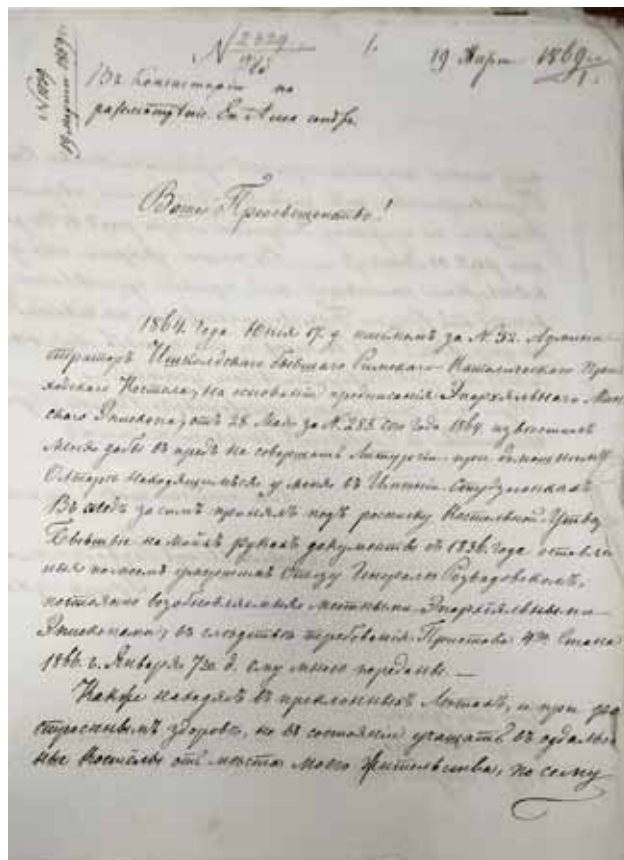 № 2429
1.
19 Март 1869 г.
№ 1079
19 марта 1869 г.
Въ Консисторію на
разсмотрѣніе.
Ваше Преосвященство!
1864 Года Юнія 17 д. за № 32. Админи
страторъ Ишколдскаго бывшаго Римско-Католическаго При
ходскаго Костела, на основаніи предписанія Эпархіяльнаго Мин
скаго Эпископа, отъ 28 Мая за № 283 сего года 1864. извѣстилъ
меня дабы въ предъ не совершать Литургіи при домашнемъ
Олтарѣ находящимъся у меня въ Имѣніи
Въ слѣдъ за симъ принялъ подъ росписку Костельной Утвар
Бывшіе на моихъ рукахъ документы съ 1836 года оставлен
ныя Отцу Генералу Розвадовскому,
постоянно возобновляемыя местными Эпархіяльными
Эпископами, въ слѣдствіе требованія Пристова 4го Стана
1866 г. Января 7/20 д. ему мною переданы. —
Нынѣ находясь въ преклонныхъ Летахъ, и при раз
строенномъ здоровьѣ, не въ состояніи учащать въ отдален
ные Костелы отъ места моего жительства, по сему